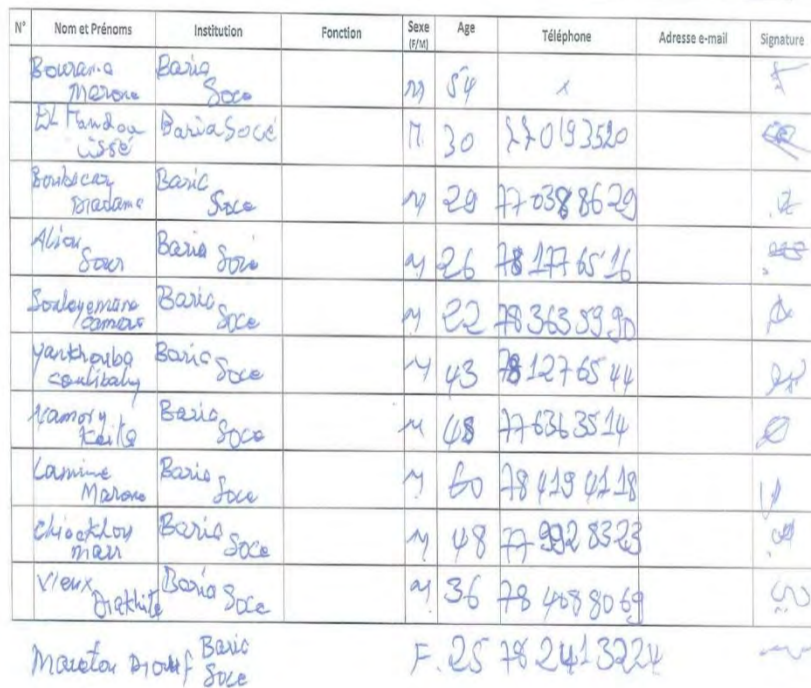 N° Nom et Prénoms Institution Fonction Sexe (F/M) Age Téléphone Adresse e-mail Signature
Bourama Marone Baria Soce M 54 x
El Mandou cissé Baria Socé M. 30 770193520
Boubacar Diadame Baria Soce M 29 77 038 86 29
Aliou Sour Baria Soce M 26 78 177 65 16
Souleymane camara Baria Soce M 22 78 363 59 90
Yankhouba coulibaly Baria Soce M 43 78 127 65 44
Namory Keita Baria Soce M 48 77 636 35 14
Lamine Marone Baria Soce M 60 78 419 41 18
Marr Baria Soce M 48 77 992 83 23
Vieux Diakhite Baria Soce M 36 78 408 80 69
Maretou Diouf Baria Soce F. 25 78 241 32 24